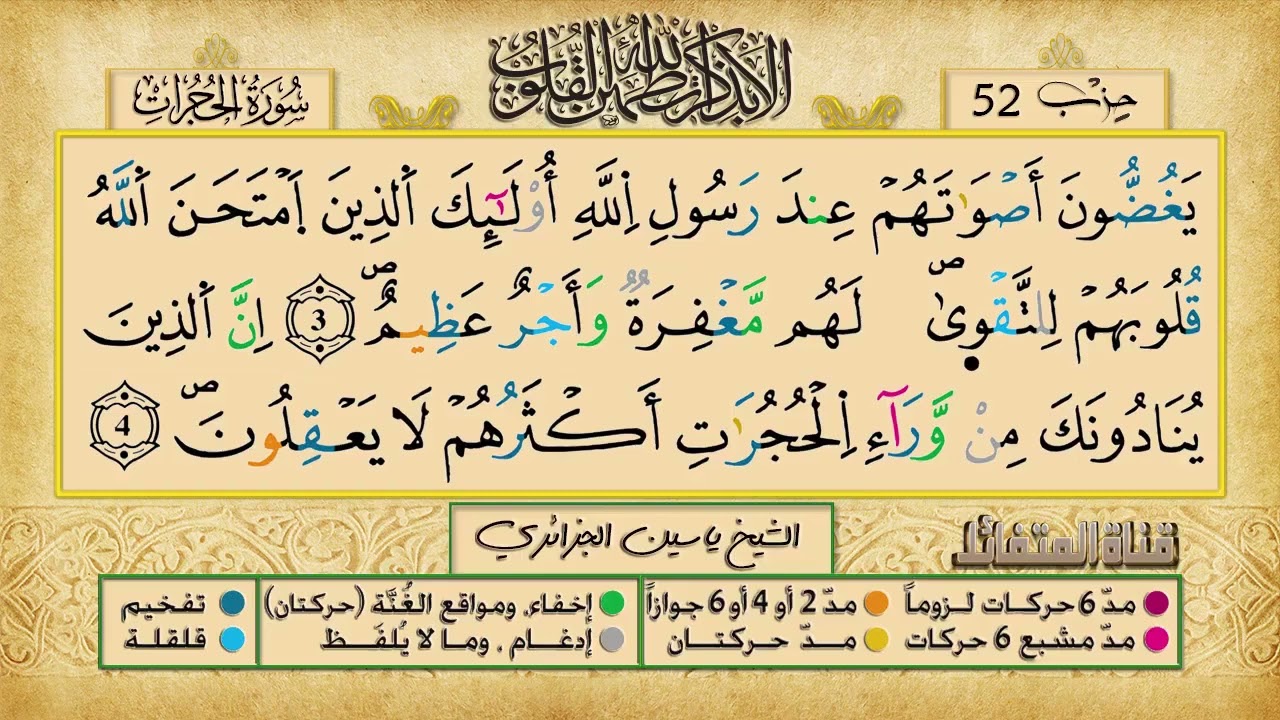 حِزْب 52
أَلَا بِذِكْرِ اللَّهِ تَطْمَئِنُّ الْقُلُوبُ
سُورَةُ الْحُجُرَاتِ
يَغُضُّونَ أَصْوَٰتَهُمْ عِندَ رَسُولِ اِ۬للَّهِ أُوْلَٰٓئِكَ اَ۬لذِينَ اَ۪مْتَحَنَ اَ۬للَّهُ
قُلُوبَهُمْ لِلتَّقْو۪ىٰۖ لَهُم مَّغْفِرَةٌ وَأَجْرٌ عَظِيمٌۖ 3 اِنَّ اَ۬لذِينَ
يُنَادُونَكَ مِنْ وَّرَآءِ اِ۬لْحُجُرَٰتِ أَكْثَرُهُمْ لَا يَعْقِلُونَۖ 4
قناة المتفائل
الشيخ ياسين الجزائري
مدّ 6 حركات لـزوماً مدّ 2 أو 4 أو 6 جوازاً إخفاء, ومواقع الغُنَّة (حركتان) تفخيم
مدّ مشبع 6 حركات مـدّ حركتـان إدغام , ومـا لا يُلفَـظ قلقلة